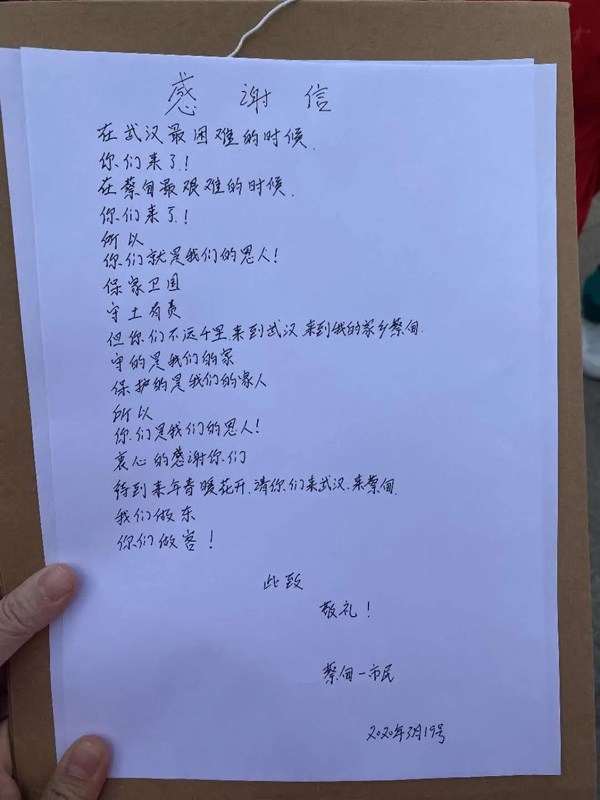 感谢信
在武汉最困难的时候.
你们来了!
在蔡甸最艰难的时候.
你们来了!
所以
你们就是我们的恩人!
保家卫国
守土有责
但你们不远千里.来到武汉.来到我的家乡蔡甸.
守的是我们的家
保护的是我们的家人
所以
你们是我们的恩人!
衷心的感谢你们
待到来年春暖花开.请你们来武汉.来蔡甸.
我们做东
你们做客!
此致
敬礼!
蔡甸一市民
2020年3月19号